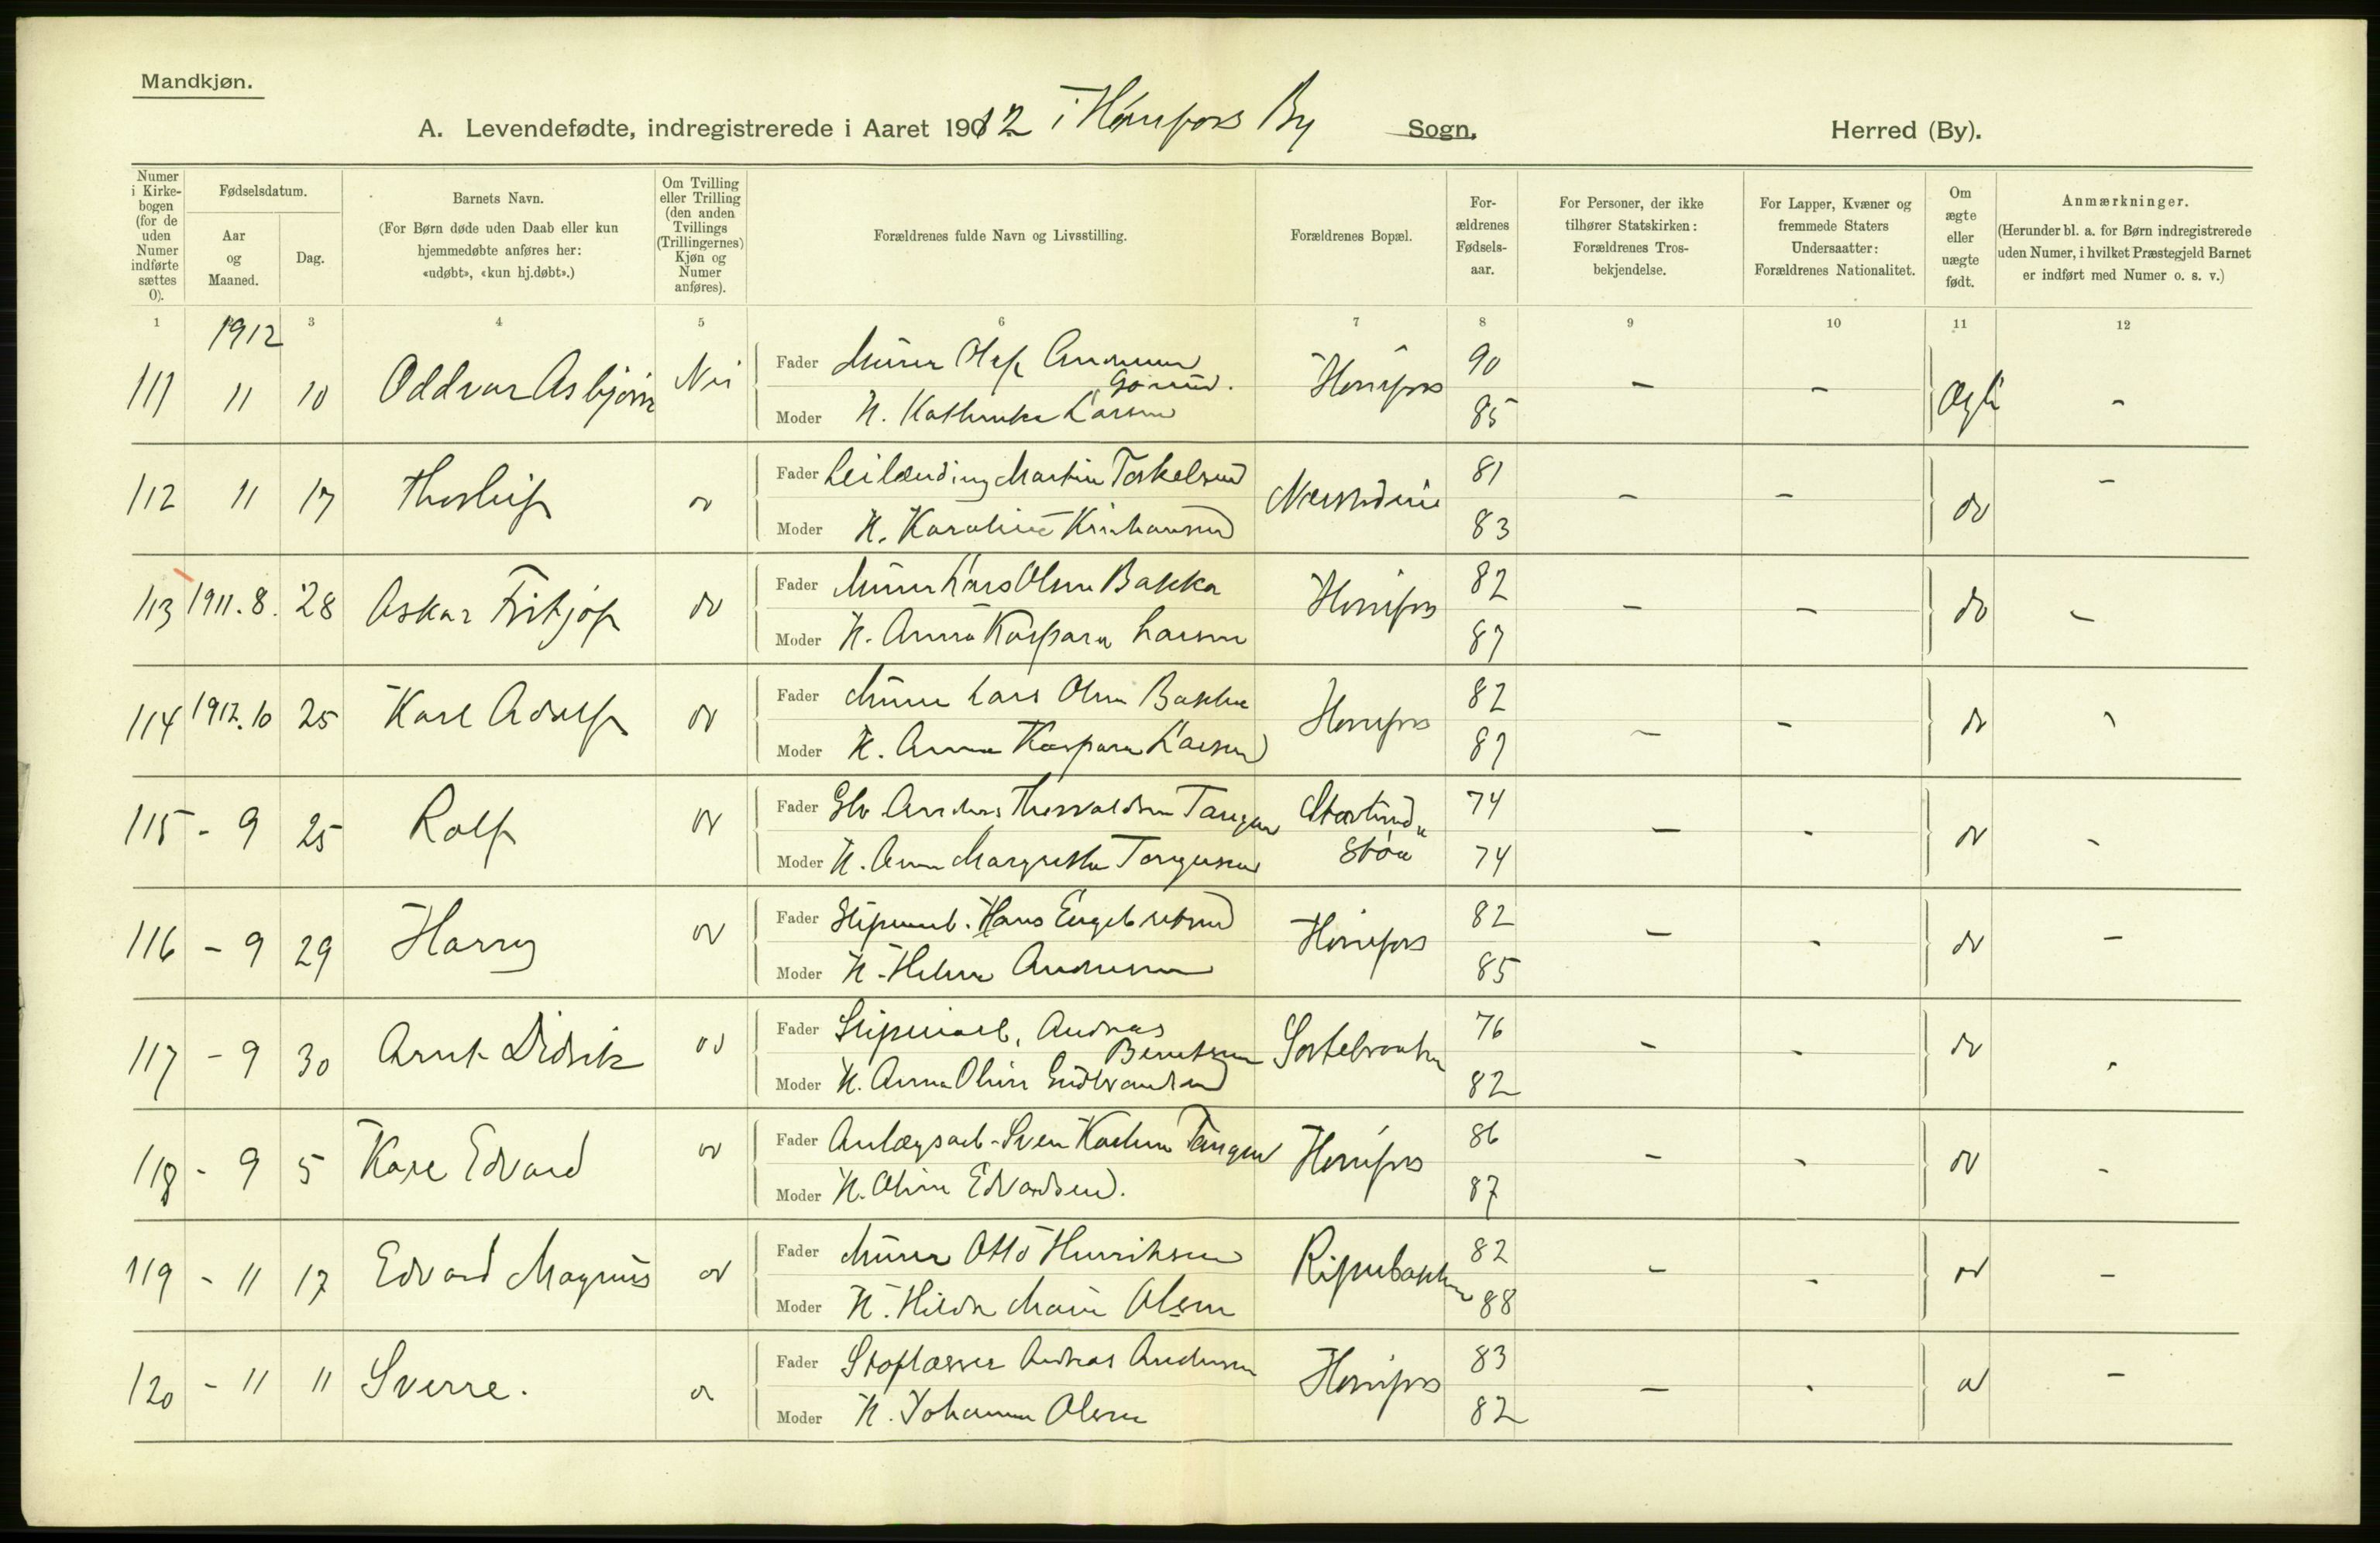 Mandkjøn.
A. Levendefødte, indregistrerede i Aaret 1912 i Hønefoss By Sogn. Herred (By).
Numer i Kirkebogen (for de uden Numer indførte sættes 0).
Fødselsdatum.
Aar og Maaned.
Dag.
Barnets Navn.
(For Børn døde uden Daab eller kun hjemmedøbte anføres her: «udøbt», «kun hj.døbt».)
Om Tvilling eller Trilling (den anden Tvillings (Trillingernes) Kjøn og Numer anføres).
Forældrenes fulde Navn og Livsstilling.
Forældrenes Bopæl.
Forældrenes Fødselsaar.
For Personer, der ikke tilhører Statskirken: Forældrenes Trosbekjendelse.
For Lapper, Kvæner og fremmede Staters Undersaatter: Forældrenes Nationalitet.
Om ægte eller uægte født.
Anmærkninger.
(Herunder bl. a. for Børn indregistrerede uden Numer, i hvilket Præstegjeld Barnet er indført med Numer o. s. v.)
1 3 4 5 6 7 8 9 10 11 12
1912
111 11 10 Oddvar Asbjørn Nei Fader Murer Olaf Hønefoss 90 - - Ægte -
Moder H. Larsen 85
112 11 17 Thorleif do Fader Leilænding Martin Torkelsen 81 - - do -
Moder H. Karoline 83
113 1911. 8. 28 Askar Fritjof do Fader Murer Lars Olsen Bakka Hønefoss 82 - - do -
Moder H. Anna Kaspara Larsen 87
114 1912. 10 25 Karl Adolf do Fader Murer Lars Olsen Bakka Hønefoss 82 - - do -
Moder H. Anna Kaspara Larsen 87
115 - 9 25 Rolf do Fader Anders Thorvaldsen Tangen 74 - - do -
Moder H. Anna Margrethe 74
116 - 9 29 Harry do Fader Hans Engebretsen Hønefoss 82 - - do -
Moder H. Helene Andersen 85
117 - 9 30 Arnt Didrik do Fader Andreas Berntsen 76 - - do -
Moder H. Anna Oline Gudbrandsen 82
118 - 9 5 Kåre Edvard do Fader Anlægsarb. Sven Tangen Hønefoss 86 - - do -
Moder H. Oline Edvardsen. 87
119 - 11 17 Edvard Magnus do Fader Murer Otto Henriksen 82 - - do -
Moder H. Hilda Marie Olsen 88
120 - 11 11 Sverre. do Fader Andreas Andersen Hønefoss 83 - - do -
Moder H. Johanne Olsen 82